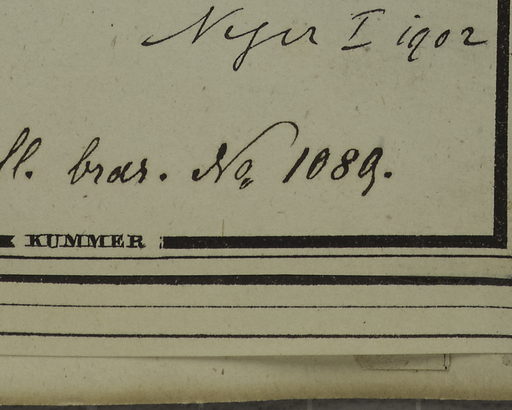 Neger I 1902
ll. bras. No. 1089.
KUMMER